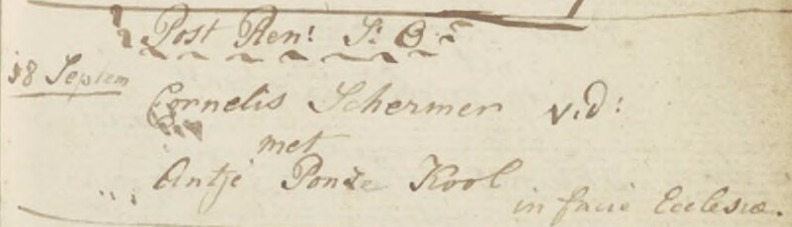 Post Ren: S: O:
18 Septem
Cornelis Schermer v.d:
met
Antje Ponse Kool
in facie Ecclesiæ.